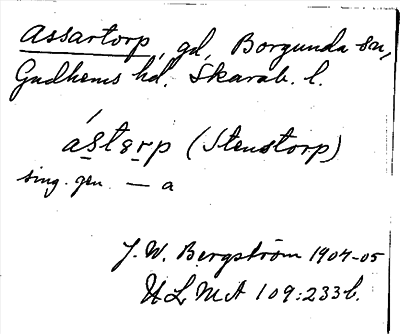 Assartorp, gd, Borgunda sn,
Gudhems hd. Skarab. l.
ásterp (Stenstorp)
sing. gen. — a
J. W. Bergström 1904-05
ULMA 109:233b.